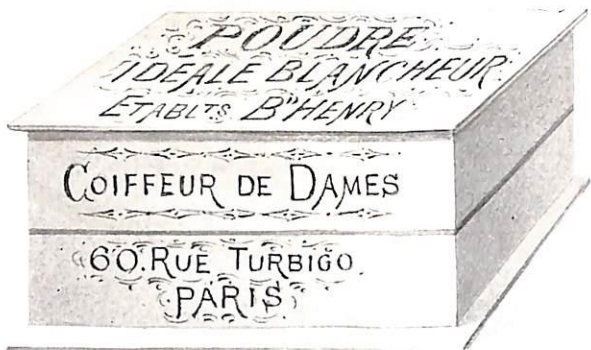 POUDRE
IDEALE BLANCHEUR
ETABLTS Bᵀᴱ HENRY
COIFFEUR DE DAMES
60. RUE TURBIGO
PARIS